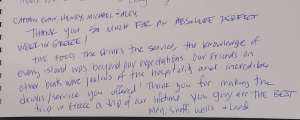 CAPTAIN , HENRY, MICHAEL + ALEX,
THANK YOU SO MUCH FOR AN ABSOLUTE PERFECT
WEEK IN GREECE!
THE FOOD, THE drinks, the service, the knowledge of
every island was beyond our expectations. Our friends on
other boats were jealous of the hospitality and incredible
drinks/service you offered! Thank you for making this
trip in Greece a trip of our lifetime. You guys are THE BEST